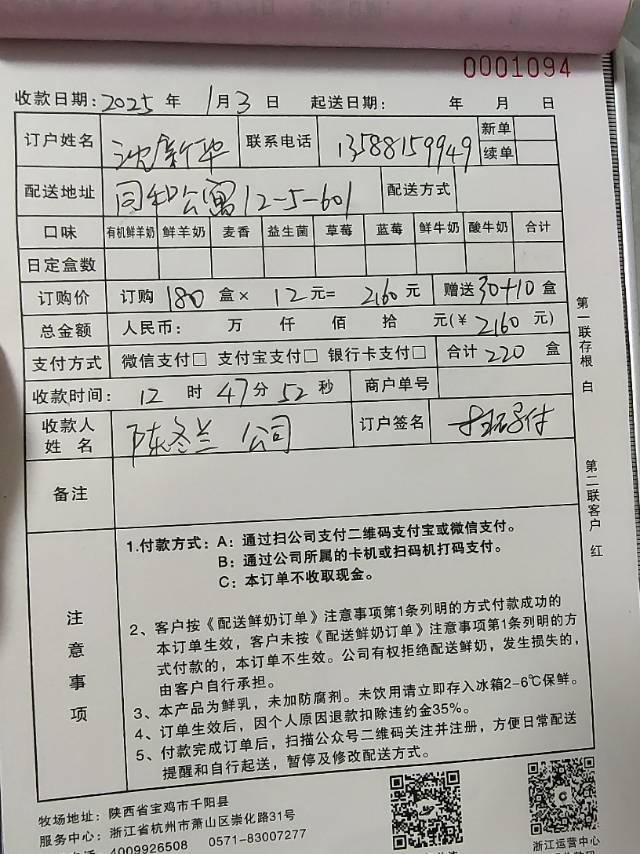 0001094
收款日期：2025 年 1 月 3 日 起送日期： 年 月 日
订户姓名 沈新华 联系电话 13588159949 新单
续单
配送地址 同和公寓12-5-601 配送方式
口味 有机鲜羊奶 鲜羊奶 麦香 益生菌 草莓 蓝莓 鲜牛奶 酸牛奶 合计
日定盒数
订购价 订购 180 盒 × 12 元= 2160 元 赠送 30+10 盒
总金额 人民币： 万 仟 佰 拾 元(¥ 2160 元)
支付方式 微信支付□ 支付宝支付□ 银行卡支付□ 合计 220 盒
收款时间： 12 时 47 分 52 秒 商户单号
收款人姓名 陈冬兰 公司 订户签名 扫码付
备注
注意事项
1.付款方式：A：通过扫公司支付二维码支付宝或微信支付。
B：通过公司所属的卡机或扫码机打码支付。
C：本订单不收取现金。
2、客户按《配送鲜奶订单》注意事项第1条列明的方式付款成功的
本订单生效，客户未按《配送鲜奶订单》注意事项第1条列明的方
式付款的，本订单不生效。公司有权拒绝配送鲜奶，发生损失的，
由客户自行承担。
3、本产品为鲜乳，未加防腐剂。未饮用请立即存入冰箱2-6℃保鲜。
4、订单生效后，因个人原因退款扣除违约金35%。
5、付款完成订单后，扫描公众号二维码关注并注册，方便日常配送
提醒和自行起送，暂停及修改配送方式。
牧场地址：陕西省宝鸡市千阳县
服务中心：浙江省杭州市萧山区崇化路31号
4009926508 0571-83007277
浙江运营中心
第一联存根 白
第二联客户 红